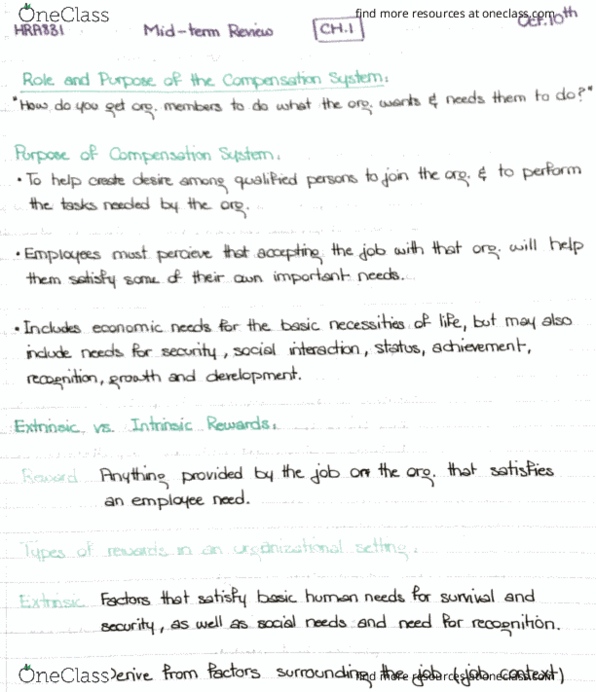 OneClass
find more resources at oneclass.com
HRM331 Mid-term Review CH.1 10th
Role and Purpose of the Compensation System:
"How do you get org. members to do what the org. wants & needs them to do?"
Purpose of Compensation System:
• To help create desire among qualified persons to join the org. & to perform
the tasks needed by the org.
• Employees must percieve that accepting the job with that org. will help
them satisfy some of their own important needs.
• Includes economic needs for the basic necessities of life, but may also
include needs for security, social interaction, status, achievement,
recognition, growth and development.
Extrinsic vs. Intrinsic Rewards:
Reward Anything provided by the job or the org. that satisfies
an employee need.
Types of rewards in an organizational setting:
Extrinsic Factors that satisfy basic human needs for survival and
security, as well as social needs and need for recognition.
Derive from factors surrounding the job (job context)
OneClass
find more resources at oneclass.com